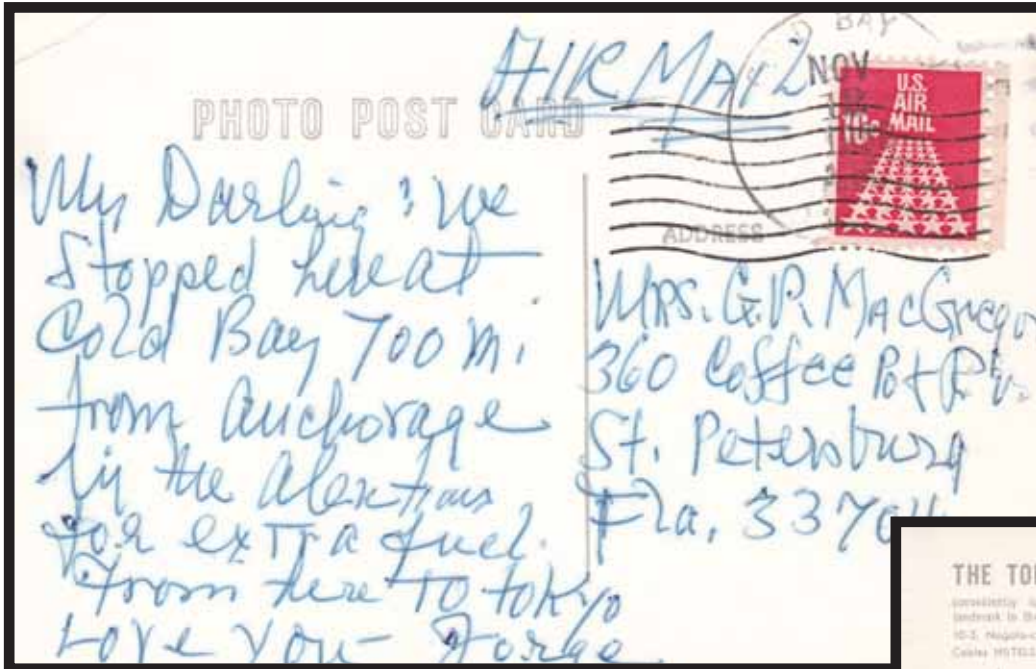 BAY
NOV
AIR MAIL
U.S.
AIR
MAIL
10c
PHOTO POST CARD
ADDRESS
My Darling: We
stopped here at
Cold Bay 700 mi.
from Anchorage
in the Aleutians
for extra fuel.
From here to Tokyo
Love you –
MRS. G.P. MacGregor
360 Coffee Pot
St. Petersburg
Fla. 33704
THE TO